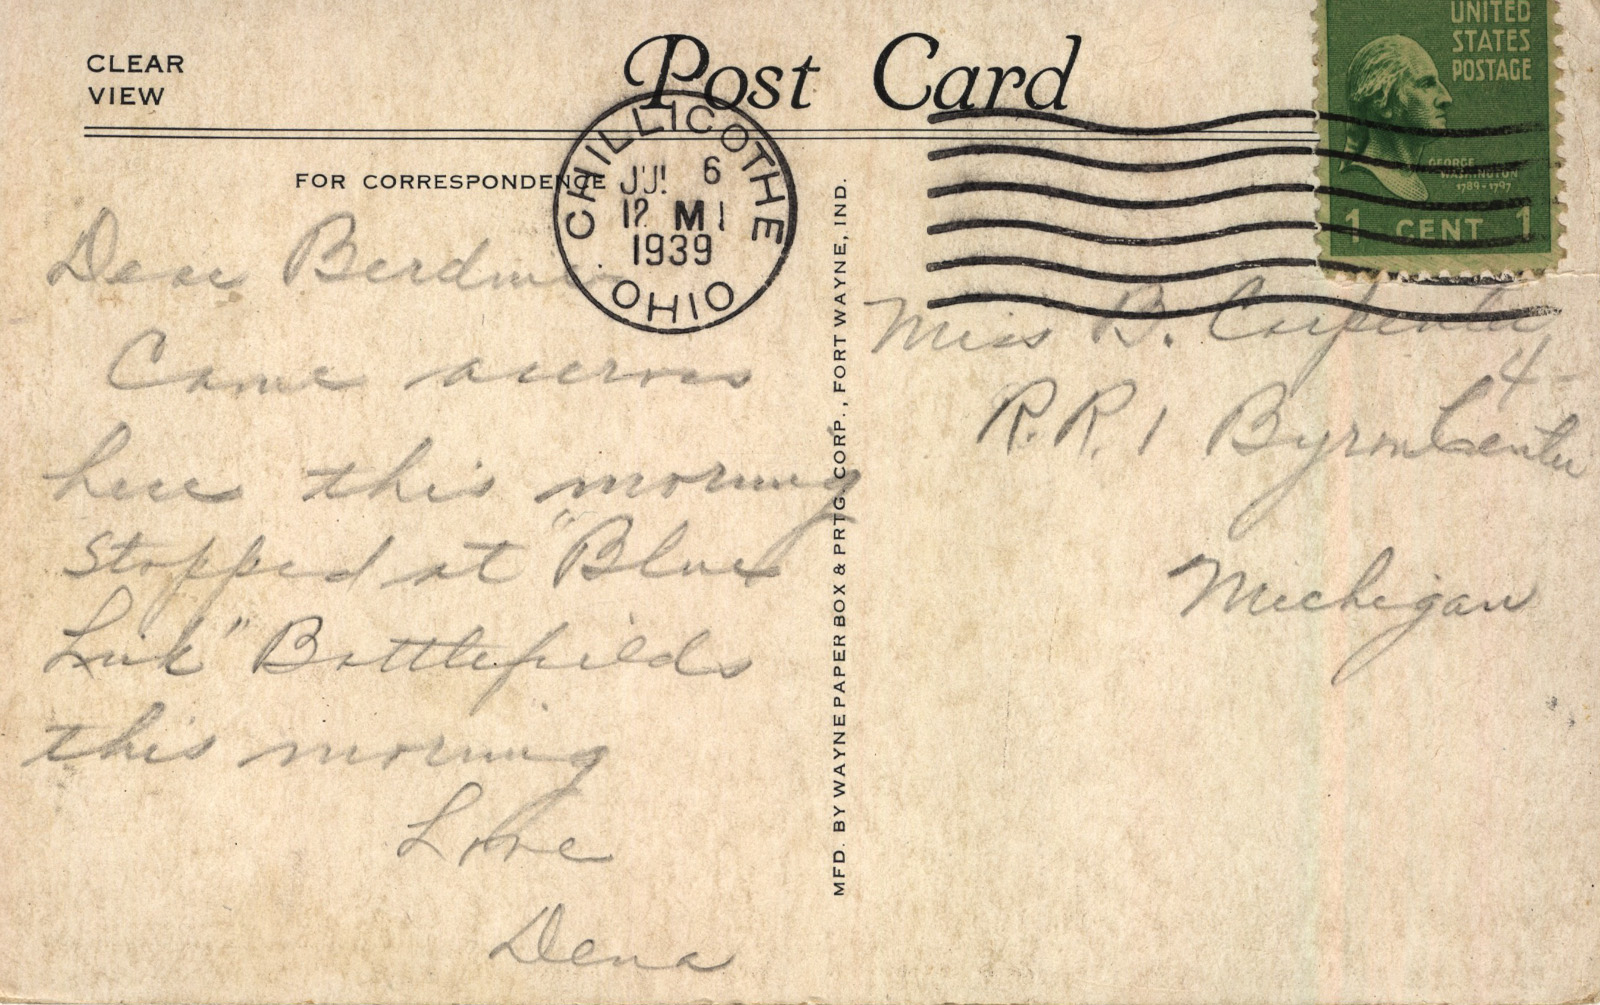 CLEAR
VIEW
Post Card
UNITED
STATES
POSTAGE
GEORGE
WASHINGTON
1789-1797
1 CENT 1
CHILLICOTHE
JUL 6
12 M
1939
OHIO
FOR CORRESPONDENCE
Dear
Came accross
here this morning
Stopped at "Blue
Lick" Battlefields
this morning
Love
Dena
MFD. BY WAYNE PAPER BOX & PRTG. CORP., FORT WAYNE, IND.
Miss B. Carpenter
4
R.R. 1 Byron Center
Michigan